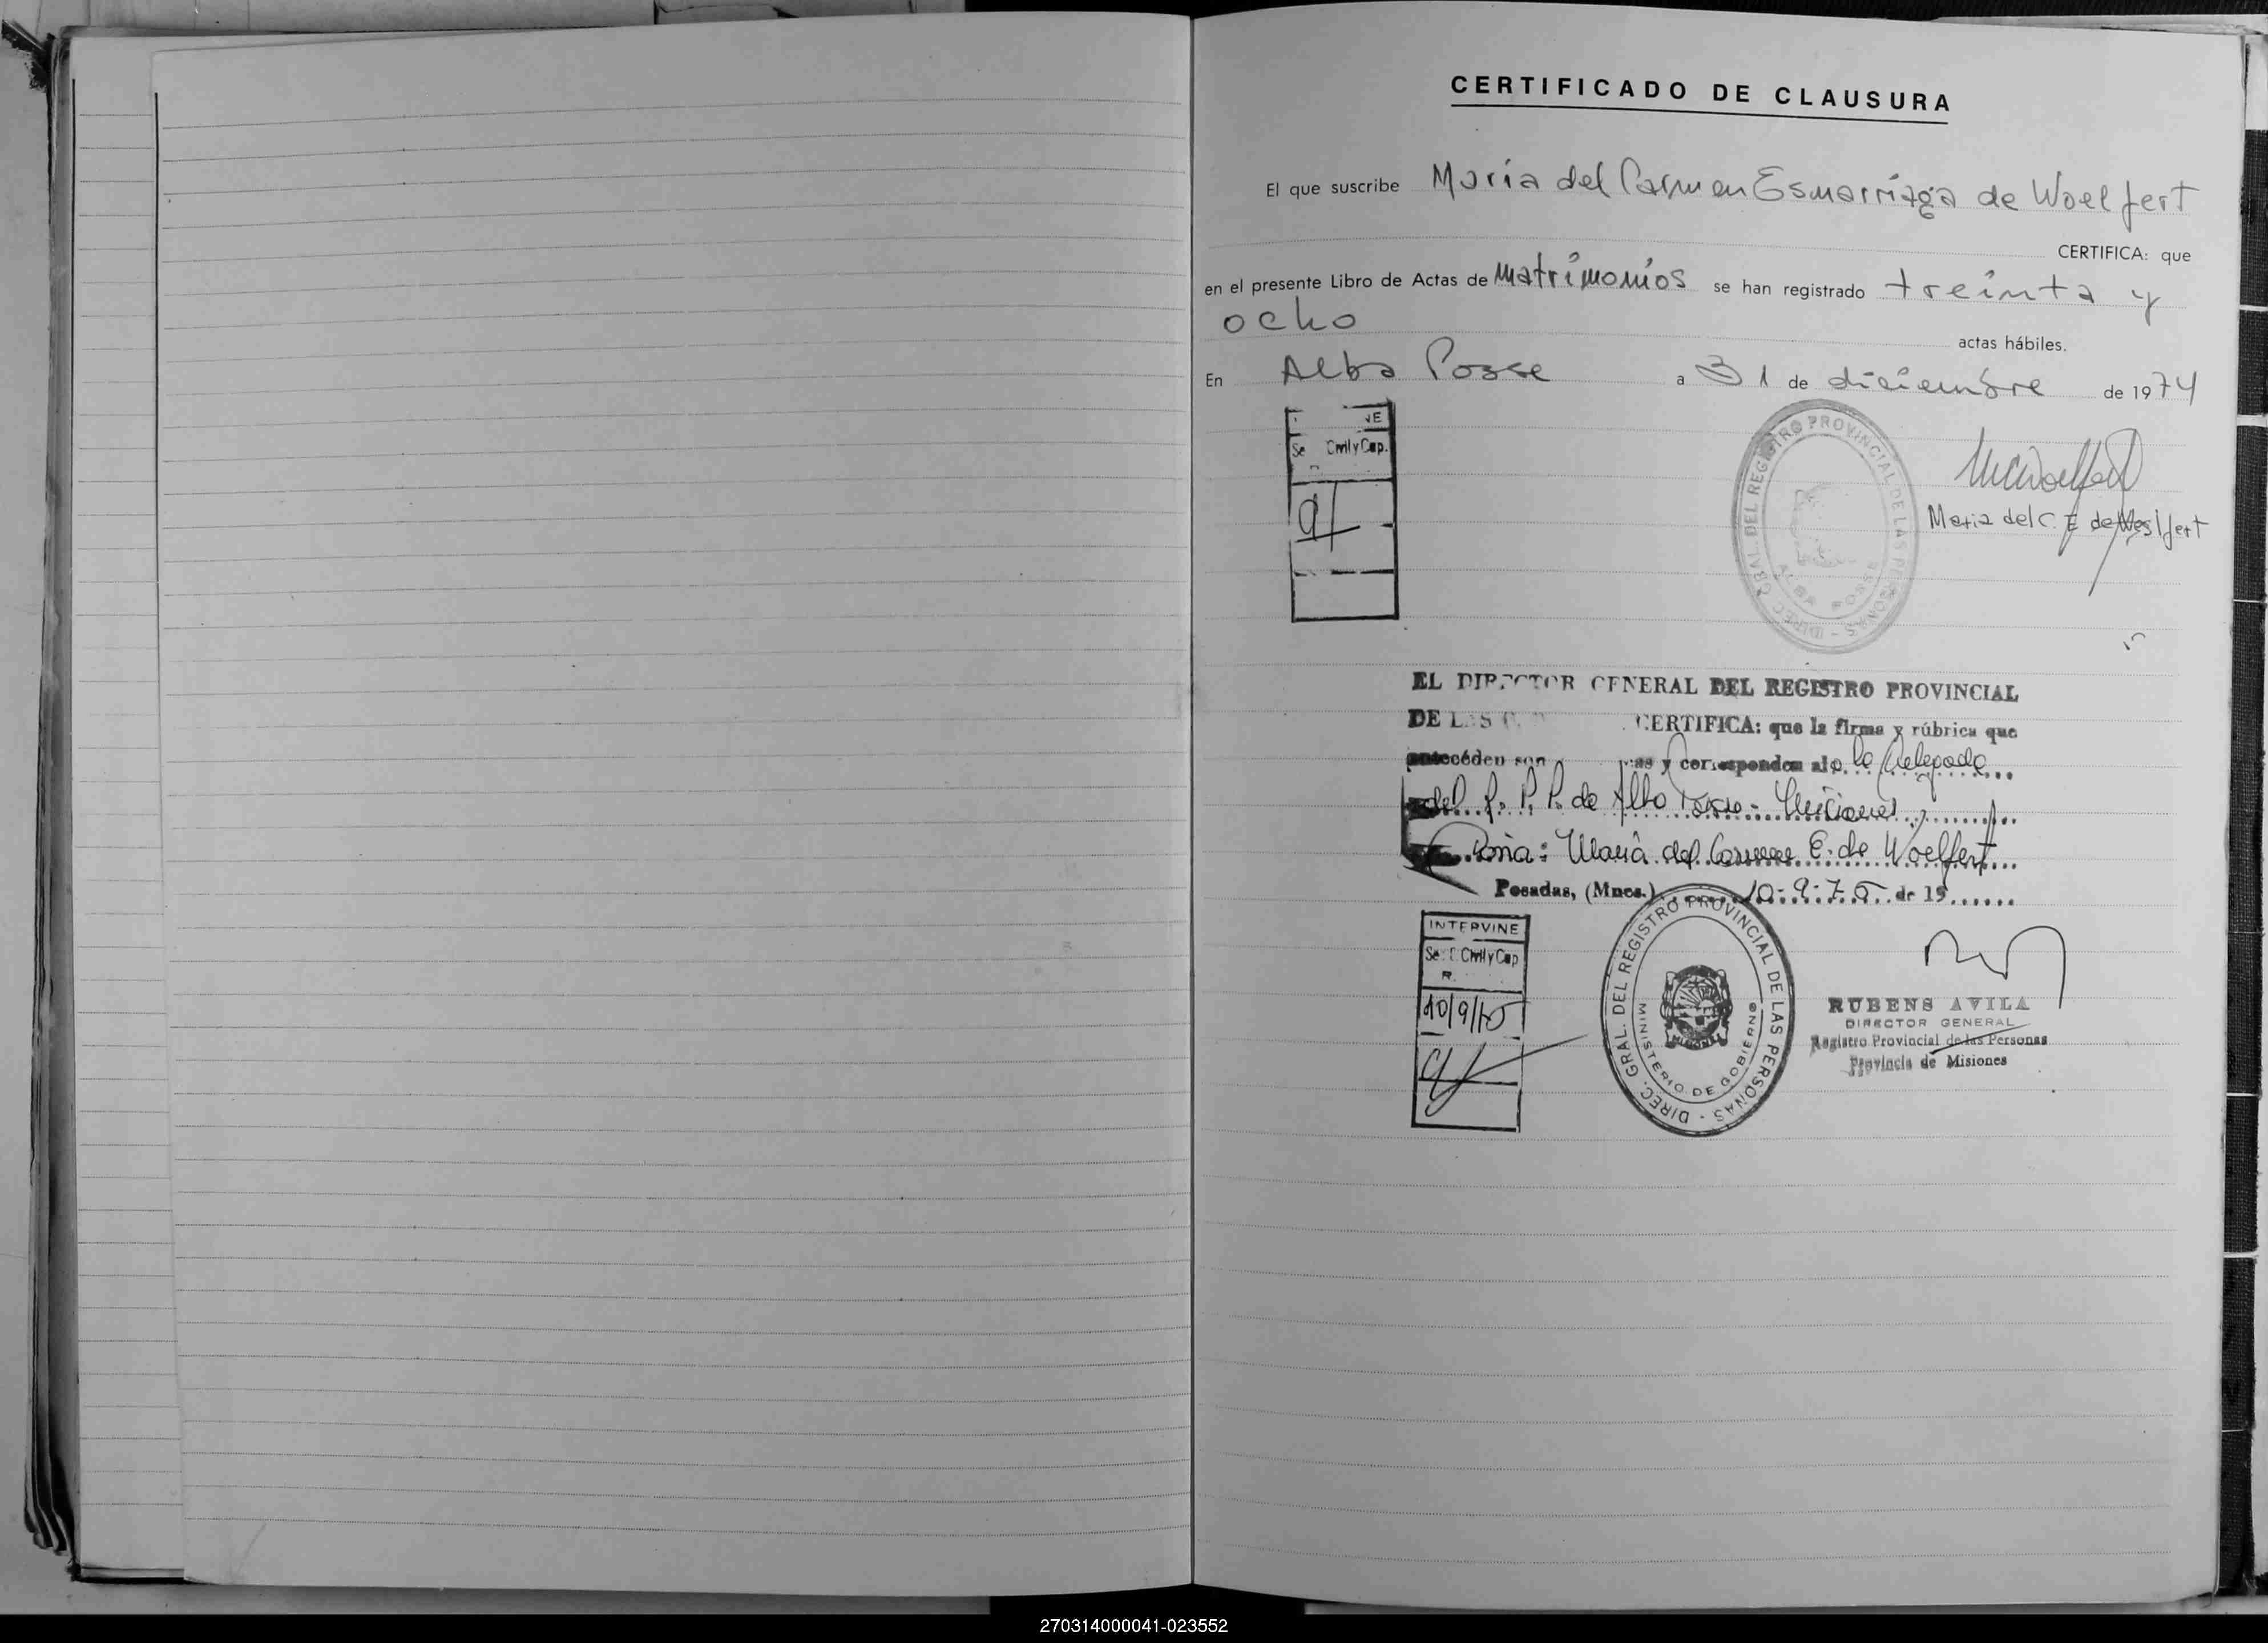 CERTIFICADO DE CLAUSURA
El que suscribe María del Carmen Esmarriaga de Woelfert
CERTIFICA: que
en el presente Libro de Actas de Matrimonios se han registrado treinta y
ocho
actas hábiles.
En Alba Posse a 31 de diciembre de 1974
Civil y Cap.
DIREC. GRAL. DEL REGISTRO PROVINCIAL DE LAS PERSONAS
ALBA POSSE
Maria del C. E de Woelfert
EL DIRECTOR GENERAL DEL REGISTRO PROVINCIAL
DE LAS CERTIFICA: que la firma y rúbrica que
anteceden son y corresponden al a la Delegada
del R. P. P. de Alba Posse - Misiones
Doña: María del Carmen E. de Woelfert
Posadas, (Mnes.) 10-9-75 de 19
INTERVINE
Civil y Cap
10/9/75
DIREC. GRAL. DEL REGISTRO PROVINCIAL DE LAS PERSONAS
MINISTERIO DE GOBIERNO
MISIONES
RUBENS AVILA
DIRECTOR GENERAL
Registro Provincial de las Personas
Provincia de Misiones
270314000041-023552